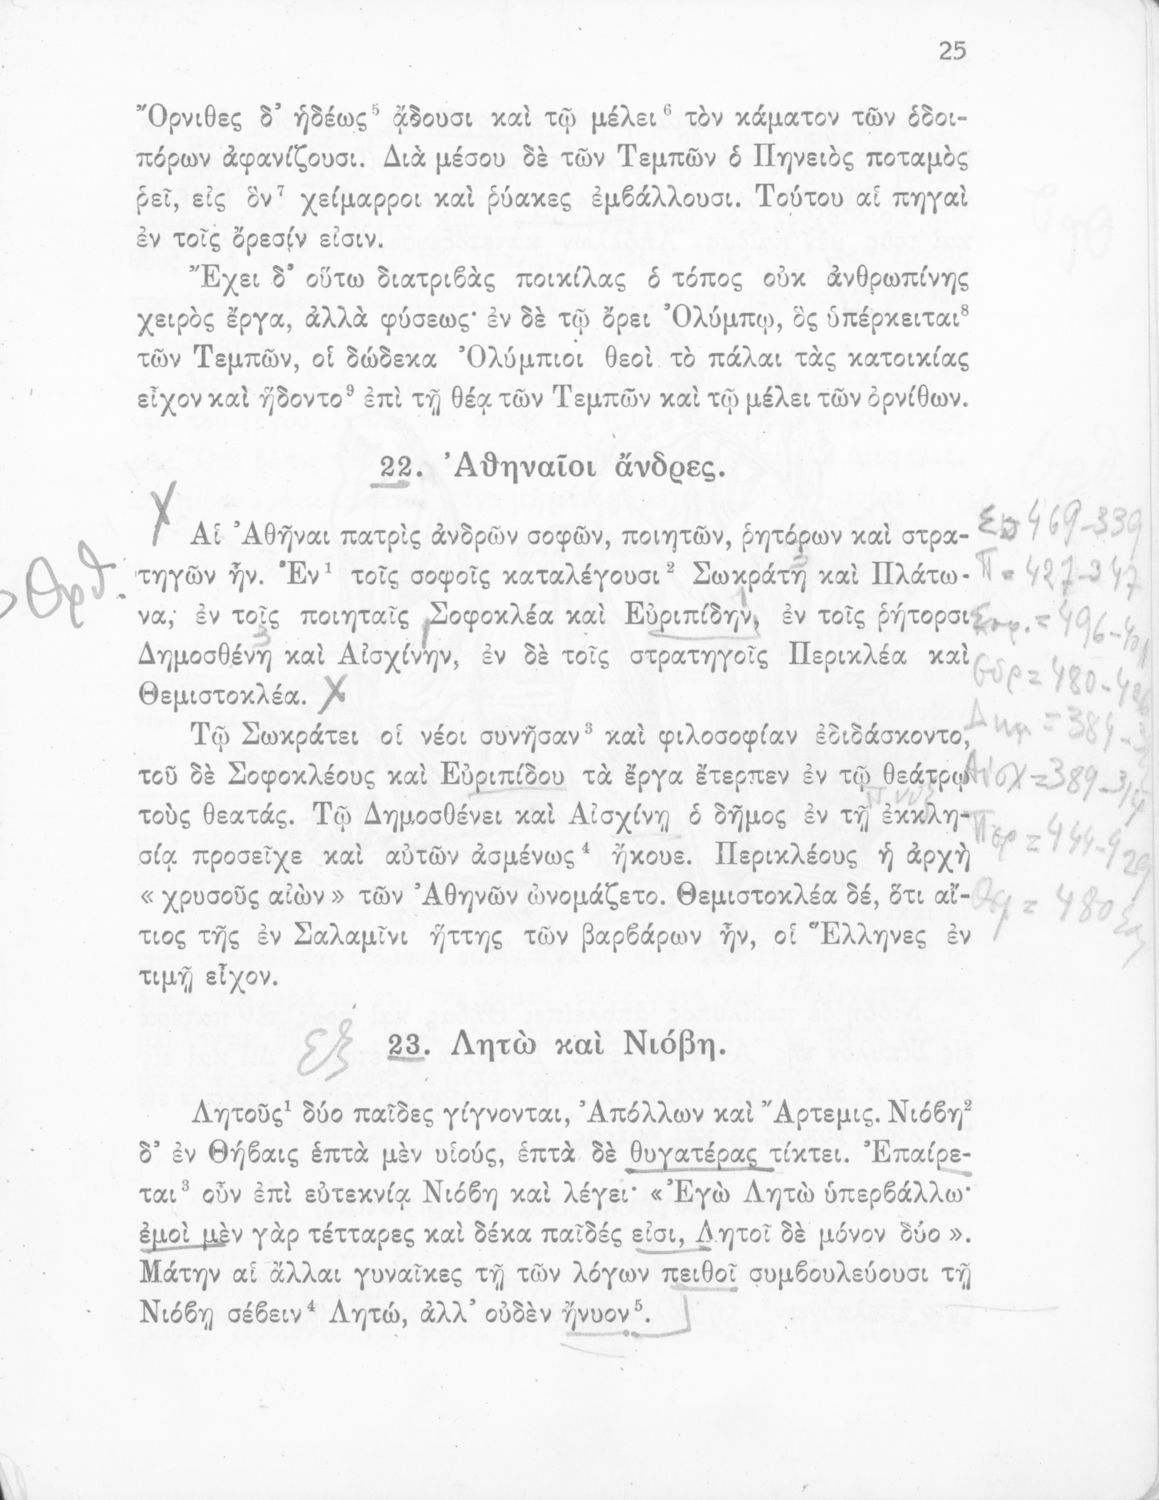 25
Ὄρνιθες δ' ἡδέως⁵ ᾄδουσι καὶ τῷ μέλει⁶ τὸν κάματον τῶν ὁδοι-
πόρων ἀφανίζουσι. Διὰ μέσου δὲ τῶν Τεμπῶν ὁ Πηνειὸς ποταμὸς
ῥεῖ, εἰς ὃν⁷ χείμαρροι καὶ ῥύακες ἐμβάλλουσι. Τούτου αἱ πηγαὶ
ἐν τοῖς ὄρεσίν εἰσιν.
Ἔχει δ' οὕτω διατριβὰς ποικίλας ὁ τόπος οὐκ ἀνθρωπίνης
χειρὸς ἔργα, ἀλλὰ φύσεως· ἐν δὲ τῷ ὄρει Ὀλύμπῳ, ὃς ὑπέρκειται⁸
τῶν Τεμπῶν, οἱ δώδεκα Ὀλύμπιοι θεοὶ τὸ πάλαι τὰς κατοικίας
εἶχον καὶ ἥδοντο⁹ ἐπὶ τῇ θέᾳ τῶν Τεμπῶν καὶ τῷ μέλει τῶν ὀρνίθων.
22. Ἀθηναῖοι ἄνδρες.
Αἱ Ἀθῆναι πατρὶς ἀνδρῶν σοφῶν, ποιητῶν, ῥητόρων καὶ στρα- Σω 469-339
Ορθ. τηγῶν ἦν. Ἐν¹ τοῖς σοφοῖς καταλέγουσι² Σωκράτη καὶ Πλάτω- Π = 427-347
να, ἐν τοῖς ποιηταῖς Σοφοκλέα καὶ Εὐριπίδην, ἐν τοῖς ῥήτορσι Σοφ. = 496-
Δημοσθένη καὶ Αἰσχίνην, ἐν δὲ τοῖς στρατηγοῖς Περικλέα καὶ Εὐρ = 480-
Θεμιστοκλέα.
Τῷ Σωκράτει οἱ νέοι συνῆσαν³ καὶ φιλοσοφίαν ἐδιδάσκοντο, Δημ = 384-
τοῦ δὲ Σοφοκλέους καὶ Εὐριπίδου τὰ ἔργα ἔτερπεν ἐν τῷ θεάτρῳ Αἰσχ = 389-314
τοὺς θεατάς. Τῷ Δημοσθένει καὶ Αἰσχίνῃ ὁ δῆμος ἐν τῇ ἐκκλη- Περ = 444-429
σίᾳ προσεῖχε καὶ αὐτῶν ἀσμένως⁴ ἤκουε. Περικλέους ἡ ἀρχὴ
« χρυσοῦς αἰὼν » τῶν Ἀθηνῶν ὠνομάζετο. Θεμιστοκλέα δέ, ὅτι αἴ- Θεμ = 480
τιος τῆς ἐν Σαλαμῖνι ἥττης τῶν βαρβάρων ἦν, οἱ Ἕλληνες ἐν
τιμῇ εἶχον.
23. Λητὼ καὶ Νιόβη.
Λητοῦς¹ δύο παῖδες γίγνονται, Ἀπόλλων καὶ Ἄρτεμις. Νιόβη²
δ' ἐν Θήβαις ἑπτὰ μὲν υἱούς, ἑπτὰ δὲ θυγατέρας τίκτει. Ἐπαίρε-
ται³ οὖν ἐπὶ εὐτεκνίᾳ Νιόβη καὶ λέγει· « Ἐγὼ Λητὼ ὑπερβάλλω·
ἐμοὶ μὲν γὰρ τέτταρες καὶ δέκα παῖδές εἰσι, Λητοῖ δὲ μόνον δύο ».
Μάτην αἱ ἄλλαι γυναῖκες τῇ τῶν λόγων πειθοῖ συμβουλεύουσι τῇ
Νιόβῃ σέβειν⁴ Λητώ, ἀλλ' οὐδὲν ἤνυον⁵.